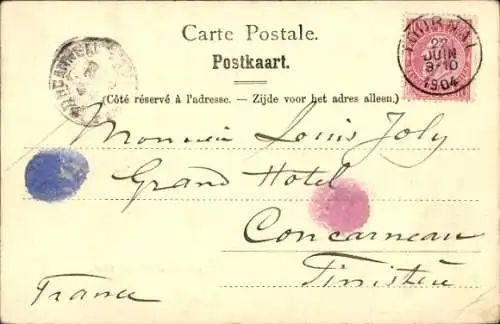 Carte Postale.
Postkaart.
(Côté réservé à l'adresse. - Zijde voor het adres alleen.)
TOURNAI
22
JUIN
9-10
1904
CONCARNEAU
Monsieur Louis Joly
Grand Hotel
Concarneau
Finistère
France